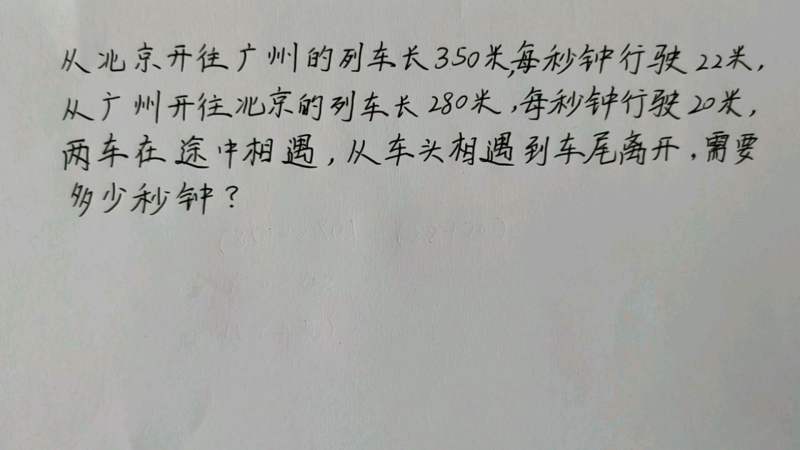 从北京开往广州的列车长350米,每秒钟行驶22米,
从广州开往北京的列车长280米,每秒钟行驶20米,
两车在途中相遇,从车头相遇到车尾离开,需要
多少秒钟?